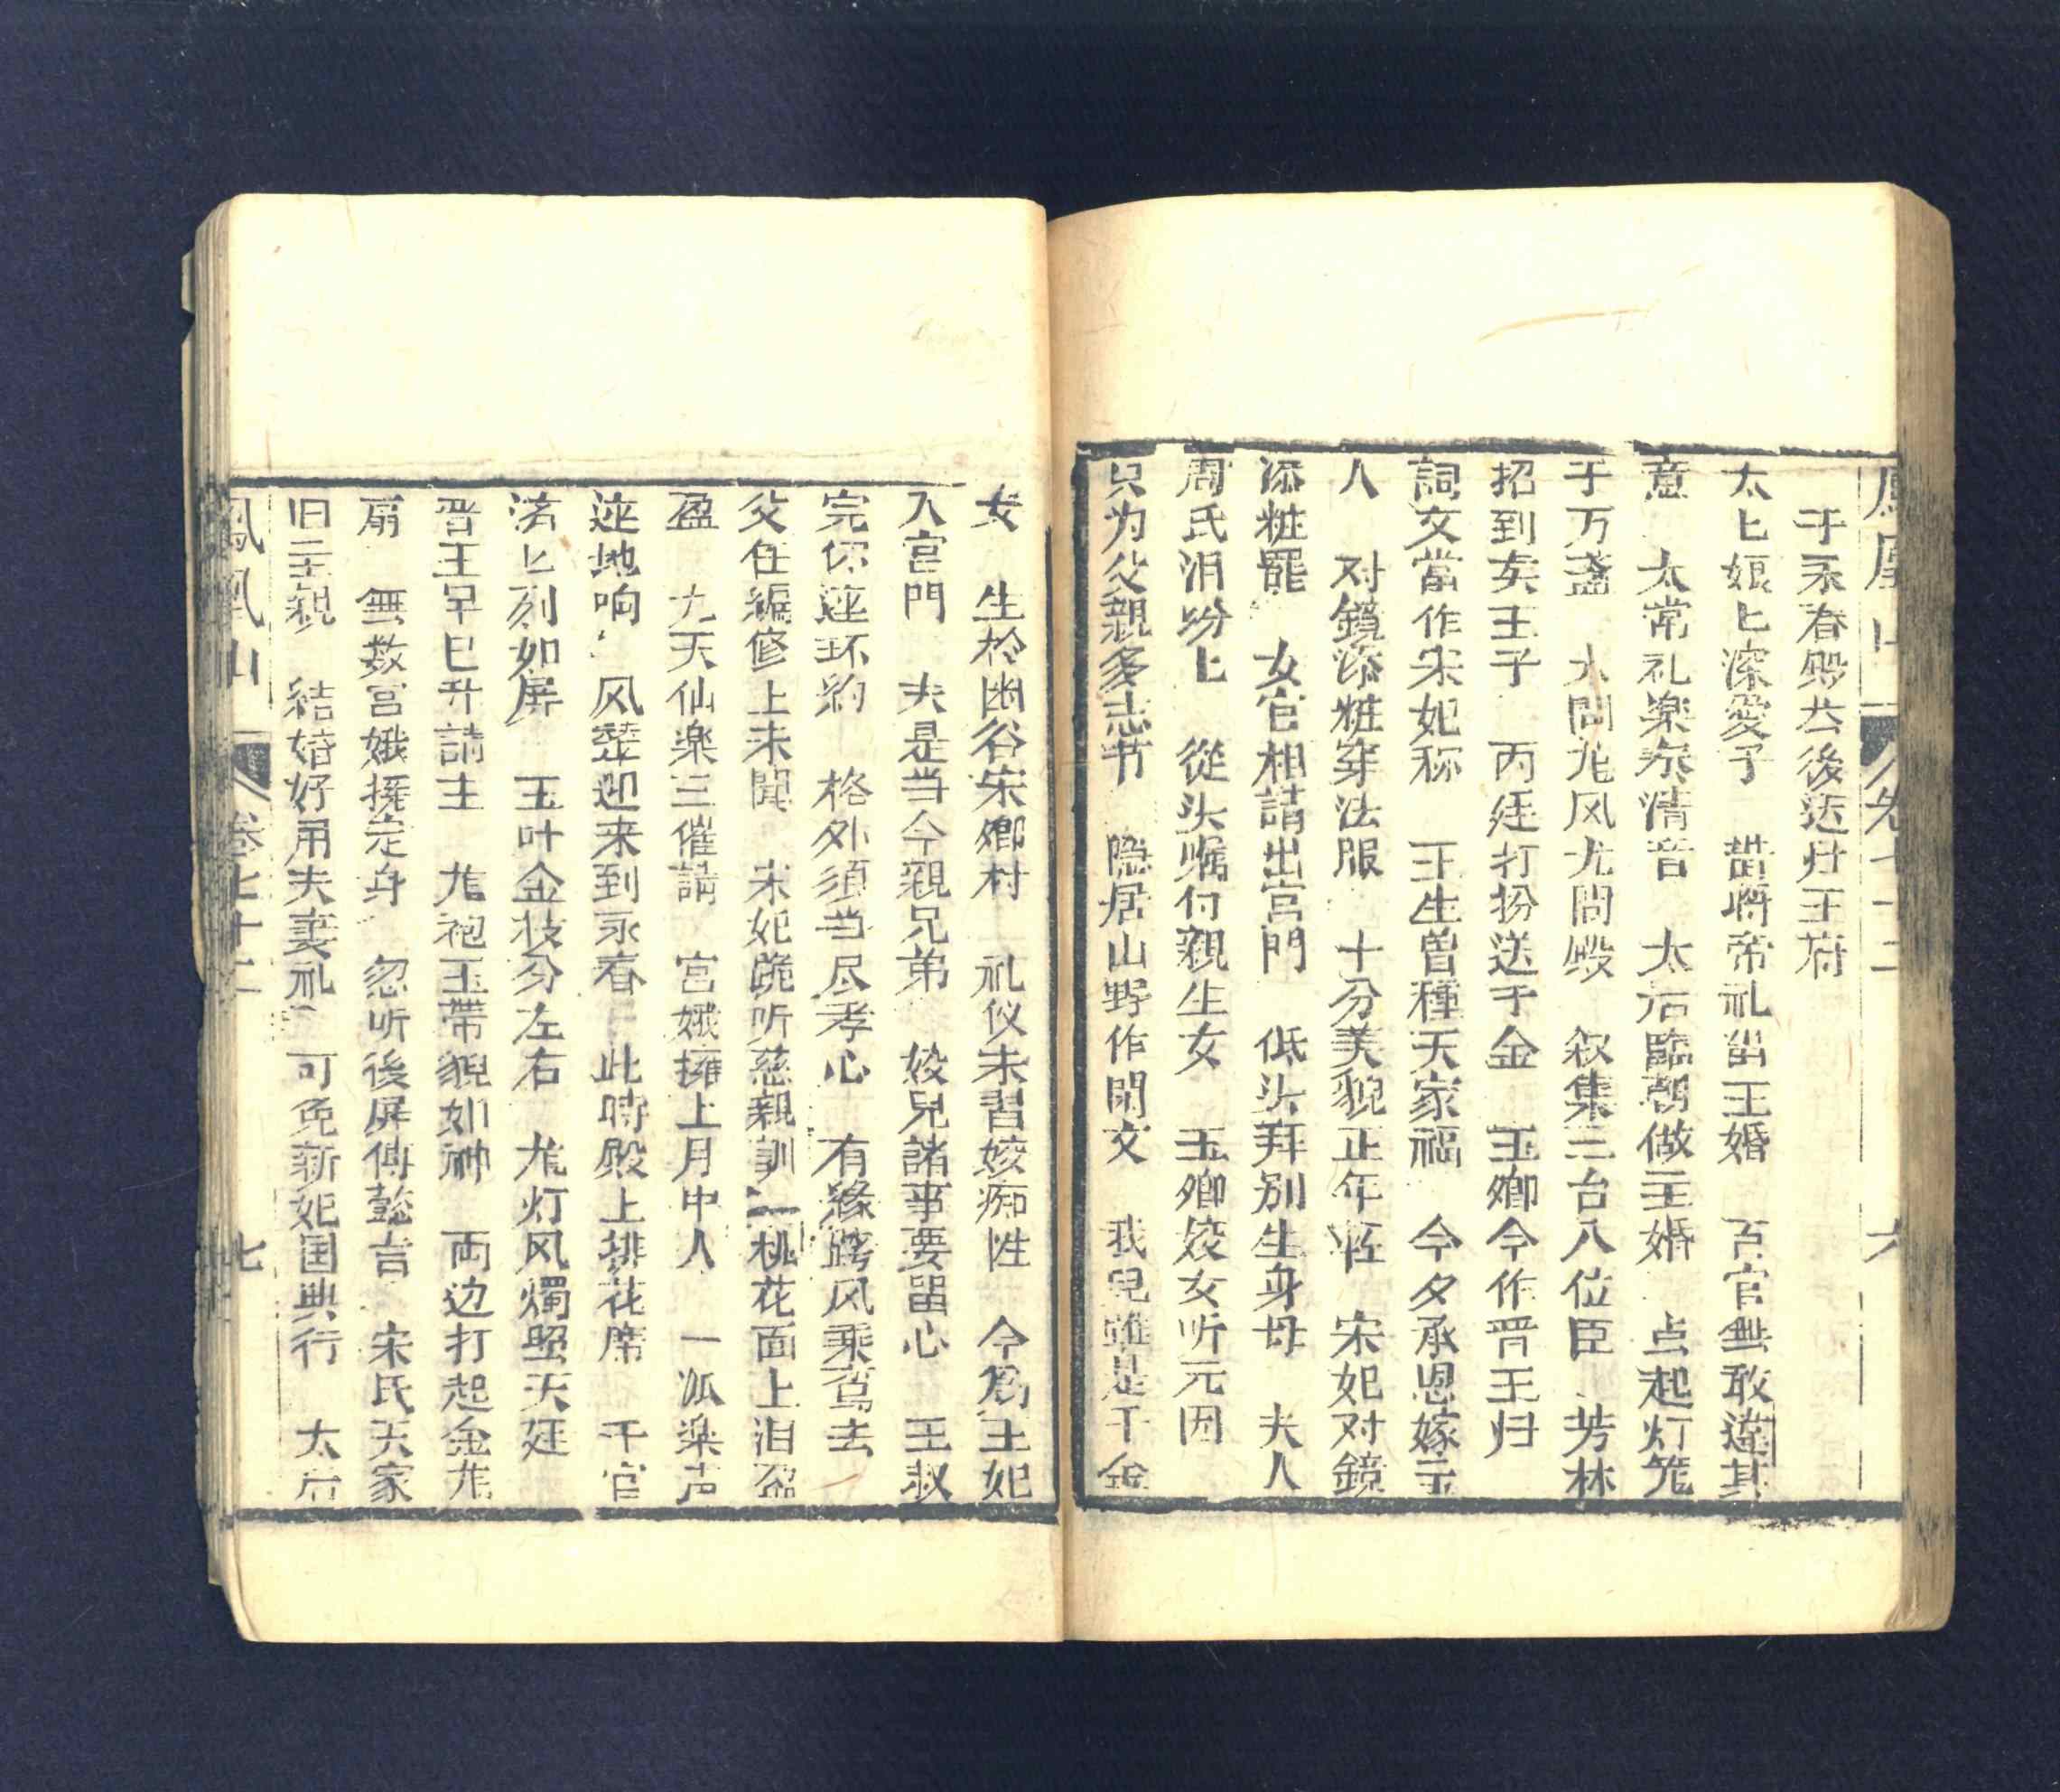 鳳凰山 卷七十二 六
于永春殿然後送灶王府
太匕娘匕深愛子 當將帝礼畄王婚 百官無敢違其
意 太常礼楽奈清音 太后臨朝做主婚 点起灯笼
于万盞 大開龙风九間殿 叙集三台八位臣 芳林
招到矣王子 丙廷打扮送千金 玉卿今作晋王归
詞文當作宋妃称 王生曾種天家福 今夕承恩嫁玉
人 对鏡添粧穿法服 十分美貌正年轻 宋妃对鏡
添粧罷 女官相請出宫門 低头拜别生身母 夫人
周氏泪紛匕 從头嘱付親生女 玉卿姣女听元因
只为父親多志节 隐居山野作閑文 我兒雖是千金
女 生柃幽谷宋卿村 礼仪未習姣痴性 今為王妃
入宫門 夫是当今親兄弟 姣兒諸事要畄心 王叔
完你連环約 格外須当尽孝心 有緣跨风乘鸾去
父任編修上未聞 宋妃跪听慈親訓 桃花面上泪盈
盈 九天仙楽三催請 宫娥擁上月中人 一派楽声
迎地响 风輦迎来到永春 此時殿上排花席 千官
济匕列如屏 玉叶金枝分左右 龙灯风燭照天廷
晋王早已升請主 龙袍玉帶貌如神 両边打起金龙
扇 無数宫娥擁定身 忽听後屏傳懿言 宋氏天家
旧至親 結婚好用夫妻礼 可免新妃国典行 太后
鳳凰山 卷七十二 七